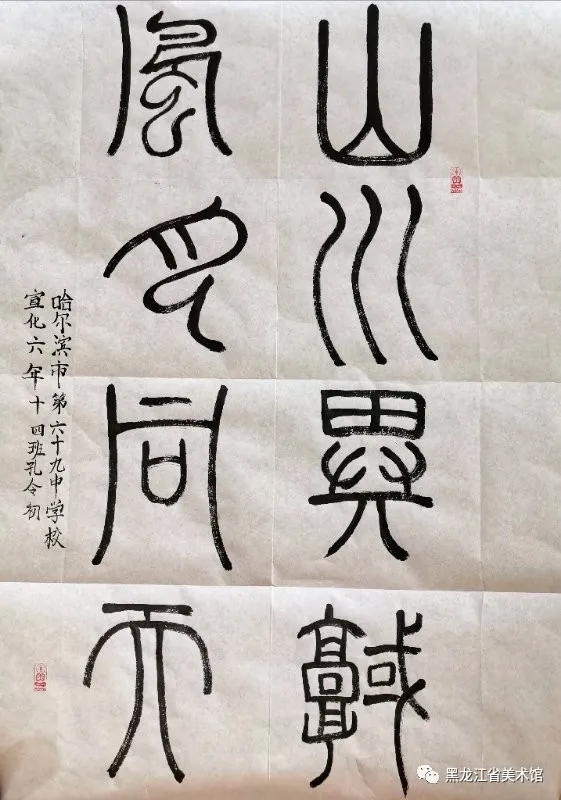 山川異域
風月同天
哈尔滨市第六十九中学校
宣化六年十四班孔令初
黑龙江省美术馆